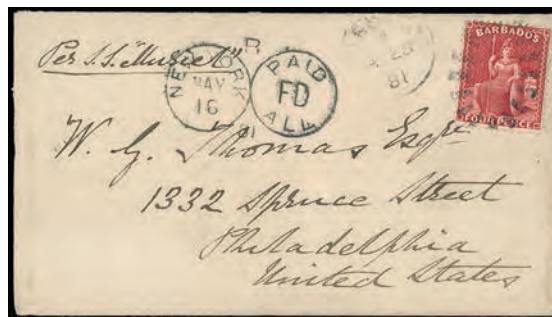 Per S.S. "Muriel"
NEW YORK
MAY
16
81
R
PAID
FD
ALL
28
81
BARBADOS
FOUR PENCE
W. G. Thomas Esqre
1332 Spruce Street
Philadelphia
United States